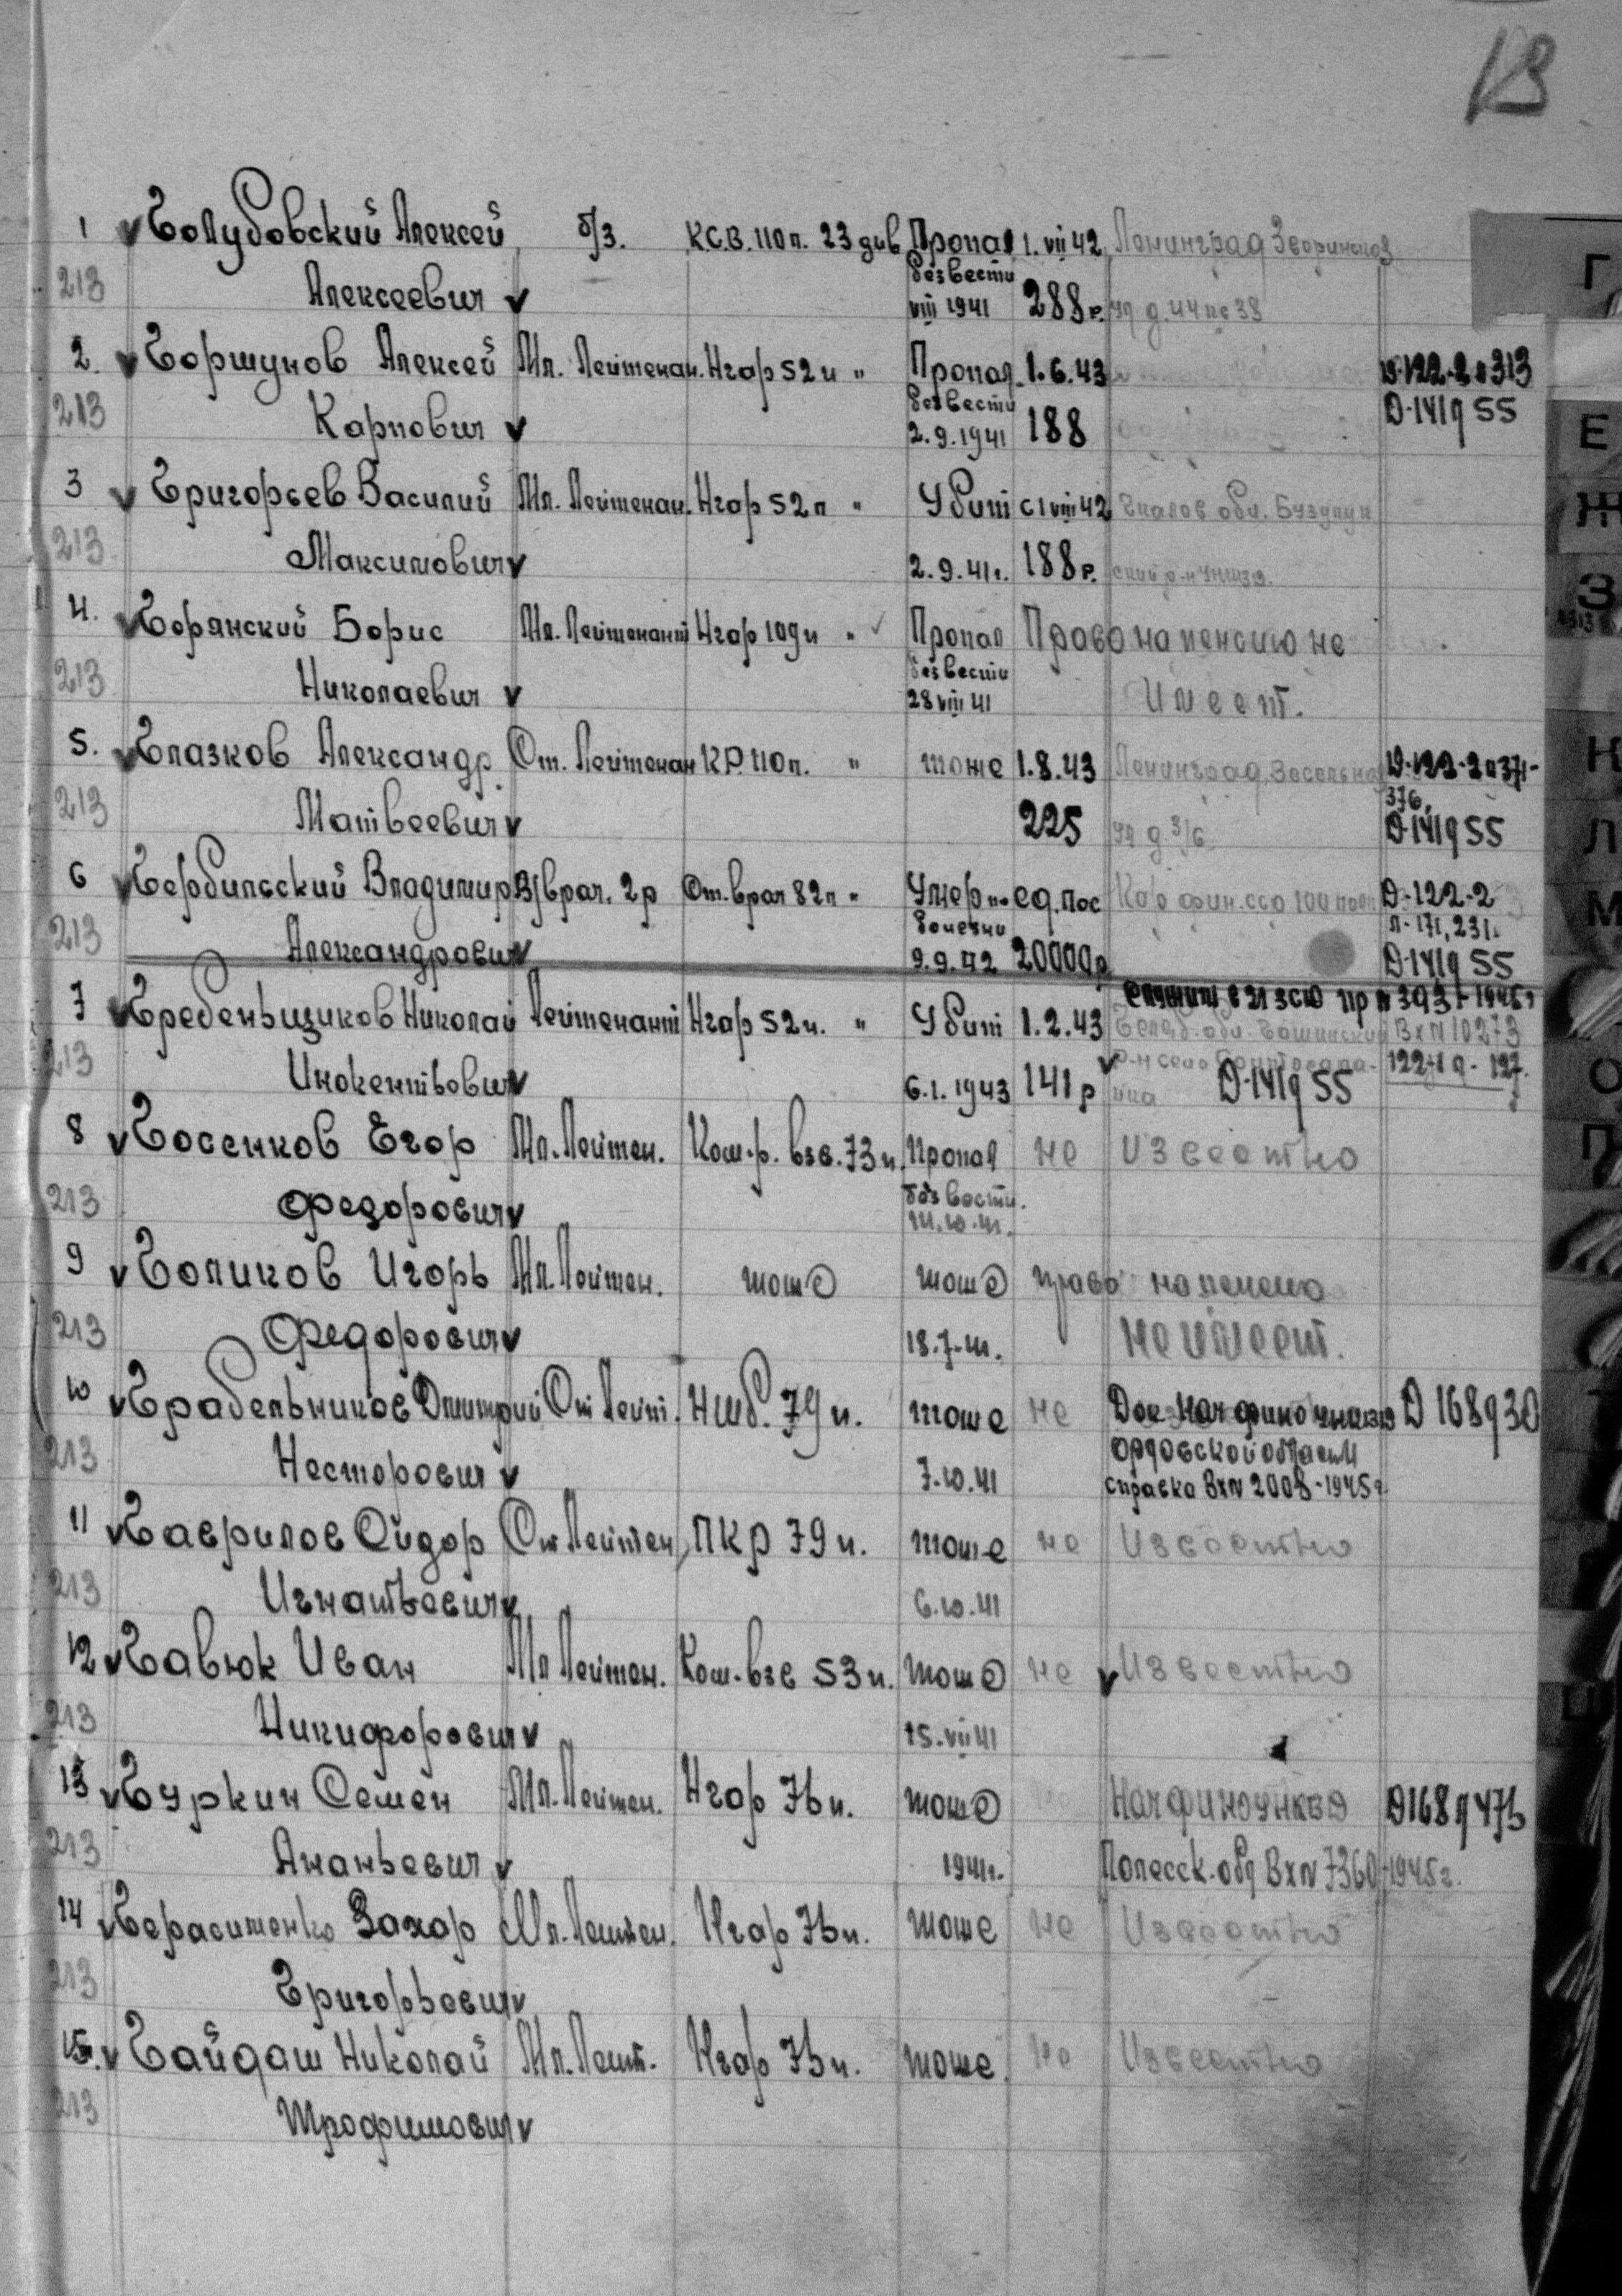 13
1 Голубовский Алексей б/з. К.С.В. 110 п. 23 див Пропал 1.VII 42 Ленинград Зверинская
213 Алексеевич безвести VIII 1941 288 р. ул д. 44 кв 38
2. Горшунов Алексей Мл. Лейтенан. Нгар 52 п " Пропал 1.6.43 D-122-2 л 313
213 Карпович безвести 2.9.1941 188 D-141 л 55
3 Григорьев Василий Мл. Лейтенан. Нгар 52 п " Убит с 1 VIII 42 Чкалов обл. Бузулук
213 Максимович 2.9.41 г. 188 р. ский р-н
4. Горянский Борис Мл. Лейтенант Нгар 109 п " Пропал Право на пенсию не
213 Николаевич безвести 28 VIII 41 Имеет.
5. Глазков Александр Ст. Лейтенан К.Р. 110 п. " тоже 1.8.43 Ленинград, D-122-2 л 371-
376,
213 Матвеевич 225 ул д 3/6 D-141 л 55
6 Гербильский Владимир В/врач. 2 р Ст. врач 82 п " Умер по ед. пос D-122-2
л-171, 231.
213 Александрович болезни 9.9.42 20000 р D-141 л 55
7 Гребеньщиков Николай Лейтенант Нгар 52 п. " Убит 1.2.43
213 Инокентьович 6.1.1943 141 р D-141 л 55 122-1 л - 127.
8 Госенков Егор Мл. Лейтен. Ком-р. взв. 73 п. Пропал не Известно
213 Федорович без вести.
9 Голиков Игорь Мл. Лейтен. тоже тоже право на пенсию
213 Федорович 18.7.41. не имеет.
10 Грабельников Дмитрий Ст Лейт. Ншб. 79 п. тоже не D 168 л 30
Орловской области
213 Несторович 7.10.41 справка Вх № 2008-1945 г.
11 Гаврилов Сидор Ст Лейтен, ПКР 79 п. тоже не Известно
213 Игнатьевич 6.10.41
12 Гавюк Иван Мл Лейтен. Ком-взв 53 п. тоже не Известно
213 Никифорович 15.VII 41
13 Гуркин Семен Мл. Лейтен. Нгар 76 п. тоже D 168 л 476
213 Ананьевич 1941 г. Полесск. обл Вх № 7360-1945 г.
14 Герасименко Захар Мл. Лейтен. Нгар 76 п. тоже не Известно
213 Григорьевич
15. Гайдаш Николай Мл. Лейт. Нгар 76 п. тоже не Известно
213 Трофимович
Г
Е
Ж
З
Н
Л
М
О
П